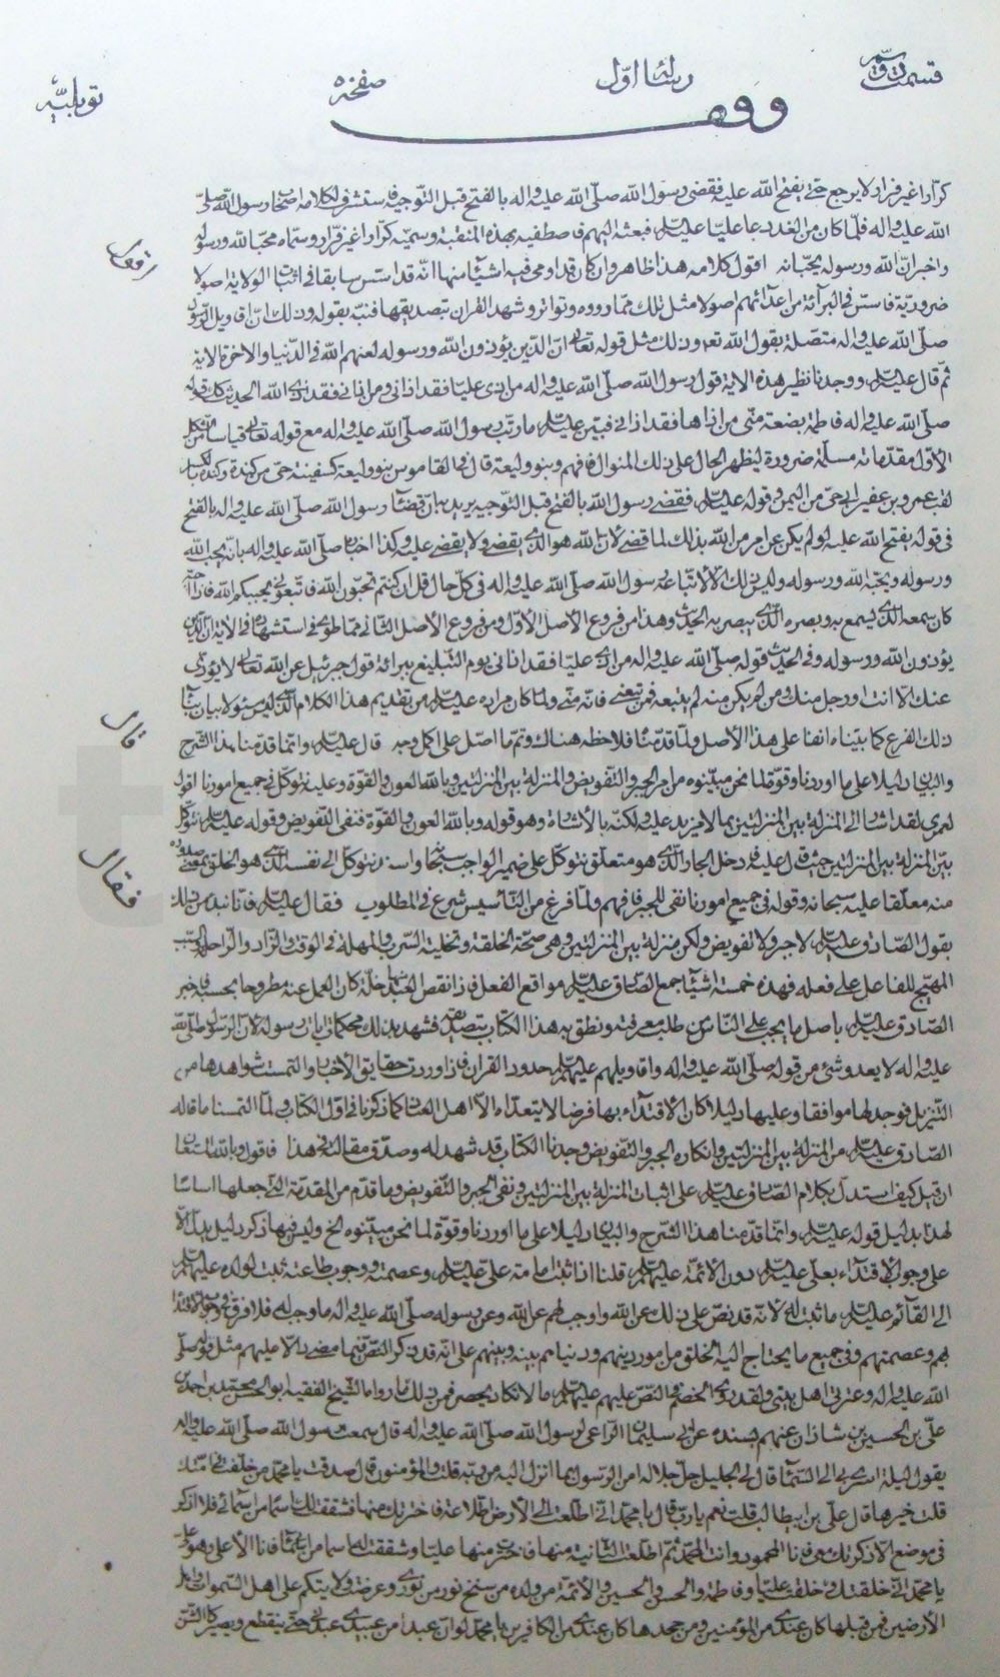 قسمت دويم رسالهٔ اوّل صفحه توبليه
وقف
كرّارا غير فرار لا يرجع حتّى يفتح الله عليه فقضى رسول الله صلّى الله عليه واله بالفتح قبل التّوجيه فاستشرف لكلامه اصحاب رسول الله صلّى
الله عليه واله فلمّا كان من الغد دعا عليّا عليه السّلم فبعثه اليهم فاصطفيه بهذه المنقبة وسميّه كرّارا غير فرّار وسمّاه محبّا لله ورسوله
واخبر انّ الله ورسوله يحبّانه اقول كلامه هذا ظاهر وان كان قد اومى فيه اشيآء منها انّه قد اسّس سابقا فى اثبات الولاية اصولا
اقول
ضرورية فاسّس فى البرآئة من اعدآئهم اصولا مثل تلك ممّا رووه وتواتر وشهد القران بتصديقها فنبّه بقوله وذلك انّ اقاويل الرّسول
صلّى الله عليه واله متصلة بقول الله تعالى وذلك مثل قوله تعالى انّ الذين يؤذون الله ورسوله لعنهم الله فى الدّنيا والاخرة الاية
ثمّ قال عليه السّلم ووجدنا نظير هذه الاية قول رسول الله صلّى الله عليه واله من اذى عليّا فقد اذانى ومن اذانى فقد اذى الله الحديث كقوله
صلّى الله عليه واله فاطمة بضعة منّى من اذاها فقد اذانى فبيّن عليه السّلم ما رتّب رسول الله صلّى الله عليه واله مع قوله تعالى قياسا من الشكل
الاوّل مقدّماته مسلّمة ضرورة ليظهر الحال على ذلك المنوال فافهم وبنو وليعة قال فى القاموس بنو وليعة كسفينة حىّ من كندة وكندة بالكسر
لقب عمرو بن عفير ابى حىّ من اليمن وقوله عليه السّلم فقضى رسول الله بالفتح قبل التّوجيه يريد به انّ قضآء رسول الله صلّى الله عليه واله بالفتح
فى قوله يفتح الله عليه لو لم يكن عن امر من الله بذلك لما قضى لانّ الله هو الذى يقضى ولا يقضى عليه وكذا اخباره صلّى الله عليه واله بانّه يحبّ الله
ورسوله ويحبّه الله ورسوله وليس ذلك الّا لاتّباعه رسول الله صلّى الله عليه واله فى كلّ حال قل ان كنتم تحبّون الله فاتّبعونى يحببكم الله فاذا احبّه
كان سمعه الذى يسمع به وبصره الذى يبصر به الحديث وهذا من فروع الاصل الاوّل ومن فروع الاصل الثانى ممّا طوى فى استشهاده فى الاية انّ الذين
يؤذون الله ورسوله وفى الحديث قوله صلّى الله عليه واله من اذى عليّا فقد اذانى يوم التّبليغ ببرائة قول جبرئيل عن الله تعالى لا يؤدّى
عنك الّا انت او رجل منك ومن لم يكن منه لم يتبعه فمن تبعنى فانّه منّى ولمّا كان مراده عليه السّلم من تقديم هذا الكلام الذى ليس مسئولا بيان بنآء
ذلك الفرع كما بيّناه انفا على هذا الاصل ولمّا قدّمنا فلاحظه هناك وتمّ ما اصّل على اكمل وجه قال عليه السّلم وانّما قدّمنا هذا الشّرح
قال
والبيان دليلا على ما اوردنا وقوّة لما نحن مبيّنوه من امر الجبر والتّفويض والمنزلة بين المنزلتين وبالله العون والقوّة وعليه نتوكّل فى جميع امورنا اقول
لعمرى لقد اشار الى المنزلة بين المنزلتين بما لا مزيد عليه ولكنّه بالاشارة وهو قوله وبالله العون والقوّة فنفى التّفويض وقوله عليه السّلم نتوكّل
بيّن المنزلة بين المنزلتين حيث قال عليه فادخل الجار والذى هو متعلّق نتوكّل على ضمير الواجب سبحانه واسند نتوكّل الى نفسه الذى هو الخلق بمعنى صدوره
منه معلّقا عليه سبحانه وقوله فى جميع امورنا نفى للجبر فافهم ولمّا فرغ من التّأسيس شرع فى المطلوب فقال عليه السّلم فانّا نبدء من ذلك
فقال
بقول الصّادق عليه السّلم لا جبر ولا تفويض ولكن منزلة بين المنزلتين وهى صحّة الخلقة وتخلية السّرب والمهلة فى الوقت والزّاد والرّاحلة والسّبب
المهيّج للفاعل على فعله فهذه خمسة اشيآء جمع الصّادق عليه السّلم مواقع الفعل فاذا نقص العبد منها خلّة كان العمل عنه مطروحا بحسبه فاخبر
الصّادق عليه السّلم باصل ما يجب على النّاس من طلب معرفته ونطق به هذا الكتاب بتصديقه فشهد بذلك محكمات ايات رسوله لانّ الرّسول صلّى الله
عليه واله لا يعدو شئ من قوله صلّى الله عليه واله واقاويلهم عليهم السّلم حدود القران فاذا وردت حقايق الاخبار والتمست شواهدها من
التّنزيل فوجد لها موافقا وعليها دليلا كان الاقتداء بها فرضا لا يتعدّاه الّا اهل العناد كما ذكرنا فى اوّل الكتاب ولمّا التمسنا ما قاله
الصّادق عليه السّلم من المنزلة بين المنزلتين وانكاره الجبر والتّفويض وجدنا الكتاب قد شهد له وصدّق مقالته فى هذا فاقول وبالله المستعان
ان قيل كيف استدلّ بكلام الصّادق عليه السّلم على اثبات المنزلة بين المنزلتين ونفى الجبر والتّفويض وما قدّم من المقدّمة التى جعلها اساسا
لهذا بدليل قوله عليه السّلم وانّما قدّمنا هذا الشّرح والبيان دليلا على ما اوردنا وقوّة لما نحن مبيّنوه الخ وليس فيها ذكر دليل يدلّ الّا
على وجوب الاقتداء بعلىّ عليه السّلم دون الائمّة عليهم السّلم قلنا اذا ثبت امامة علىّ عليه السّلم وعصمته ووجوب طاعته ثبت لولده عليهم السّلم
الى القآئم عليه السّلم ما ثبت له لانّه قد نصّ على ذلك عن الله واوجب لهم عن الله وعن رسوله صلّى الله عليه واله ما وجب له فلا فرق فى وجوب الاقتداء
بهم وعصمتهم وفى جميع ما يحتاج اليه الخلق من امور دينهم ودنياهم بينه وبينهم على انّه قد ذكر النّصّ فيما مضى دالّا عليهم مثل قوله صلّى
الله عليه واله وعترتى اهل بيتى ولقد روى الخصم النّصّ عليهم عليهم السّلم ما لا يكاد يحصر فمن ذلك ما رواه الشّيخ الفقيه ابو الحسن محمّد بن احمد بن
علىّ بن الحسين بن شاذان عنهم بسنده عن ابى سليمان الرّاعى لرسول الله صلّى الله عليه واله قال سمعت رسول الله صلّى الله عليه واله
يقول ليلة اسرى بى الى السّمآء قال لى الجليل جلّ جلاله امن الرّسول بما انزل اليه من ربّه قلت والمؤمنون قال صدقت يا محمّد من خلّفت فى امّتك
قلت خيرها قال علىّ بن ابى طالب قلت نعم يا ربّ قال يا محمّد انّى اطّلعت الى الارض اطّلاعة فاخترتك منها فشققت لك اسما من اسمآئى فلا اذكر
فى موضع الّا ذكرت معى فانا المحمود وانت محمّد ثمّ اطّلعت الثّانية منها فاخترت منها عليّا وشققت له اسما من اسمآئى فانا الاعلى وهو علىّ
يا محمّد انّى خلقتك وخلقت عليّا وفاطمة والحسن والحسين والائمّة من ولده من سنخ نور من نورى وعرضت ولايتكم على اهل السّموات واهل
الارضين فمن قبلها كان عندى من المؤمنين ومن جحدها كان عندى من الكافرين يا محمّد لو انّ عبدا من عبيدى عبدنى حتّى ينقطع ويصير كالشّنّ